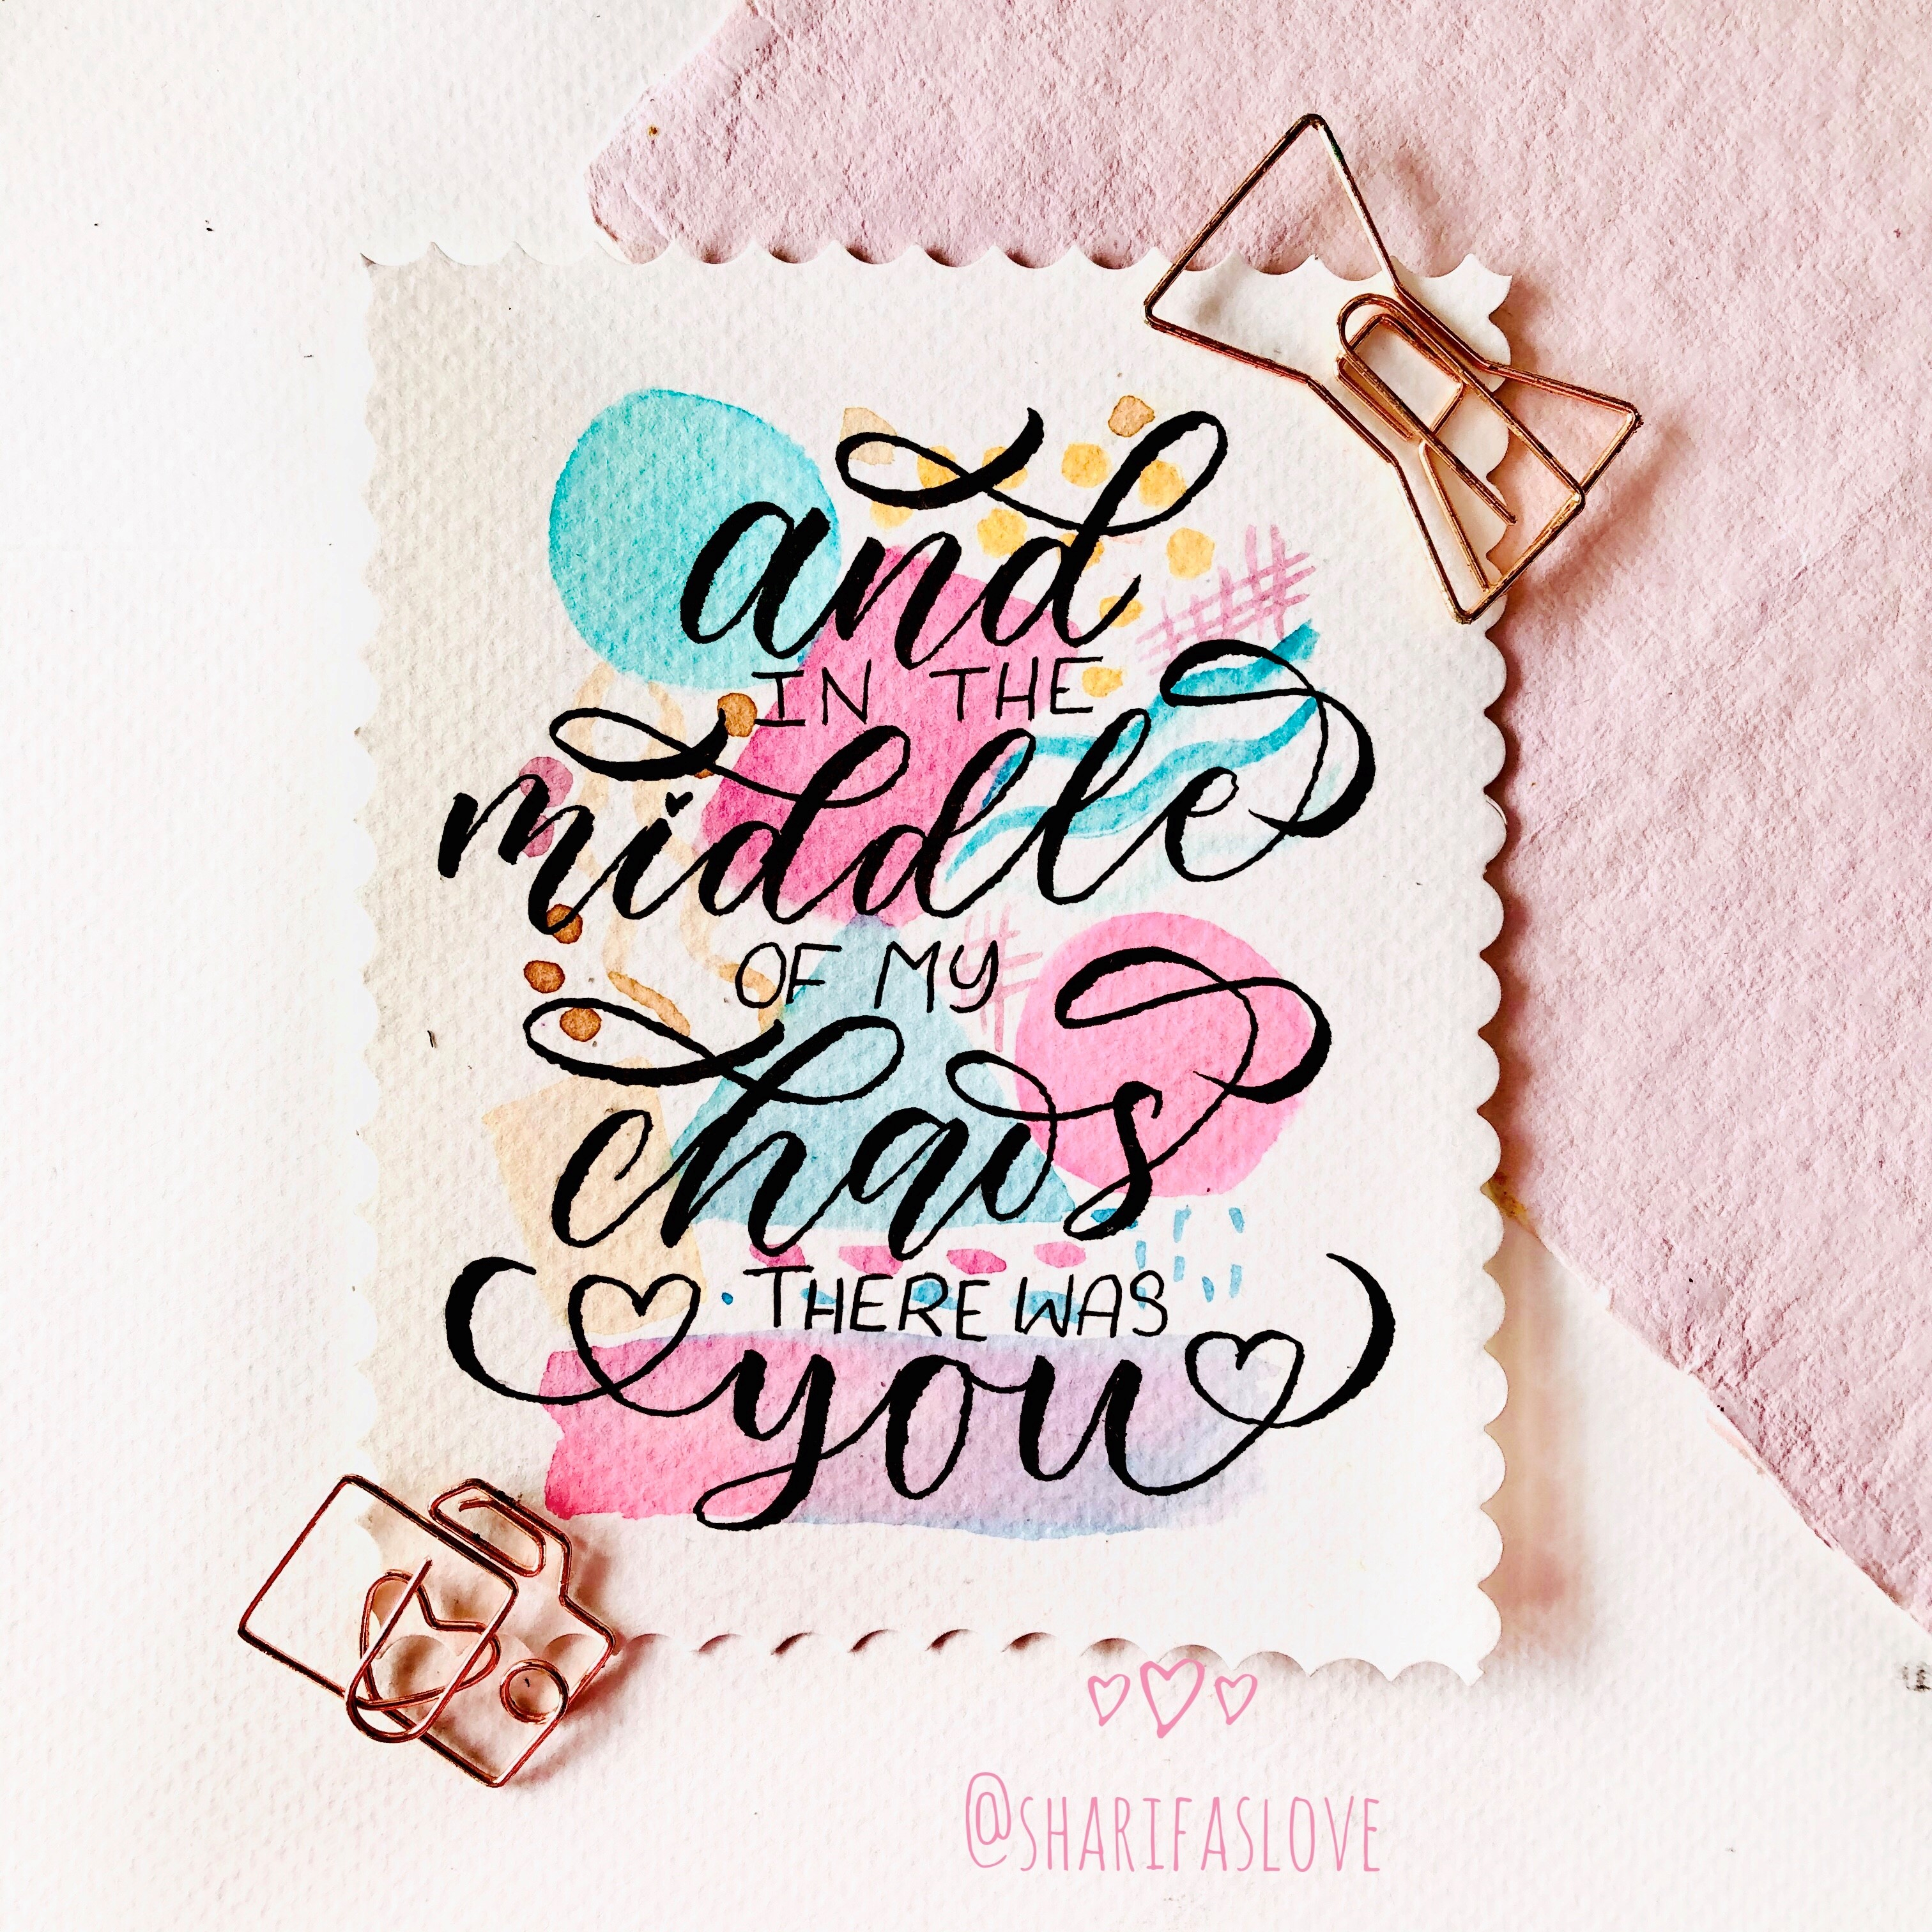 and
IN THE
middle
OF MY
chaos
THERE WAS
you
@SHARIFASLOVE